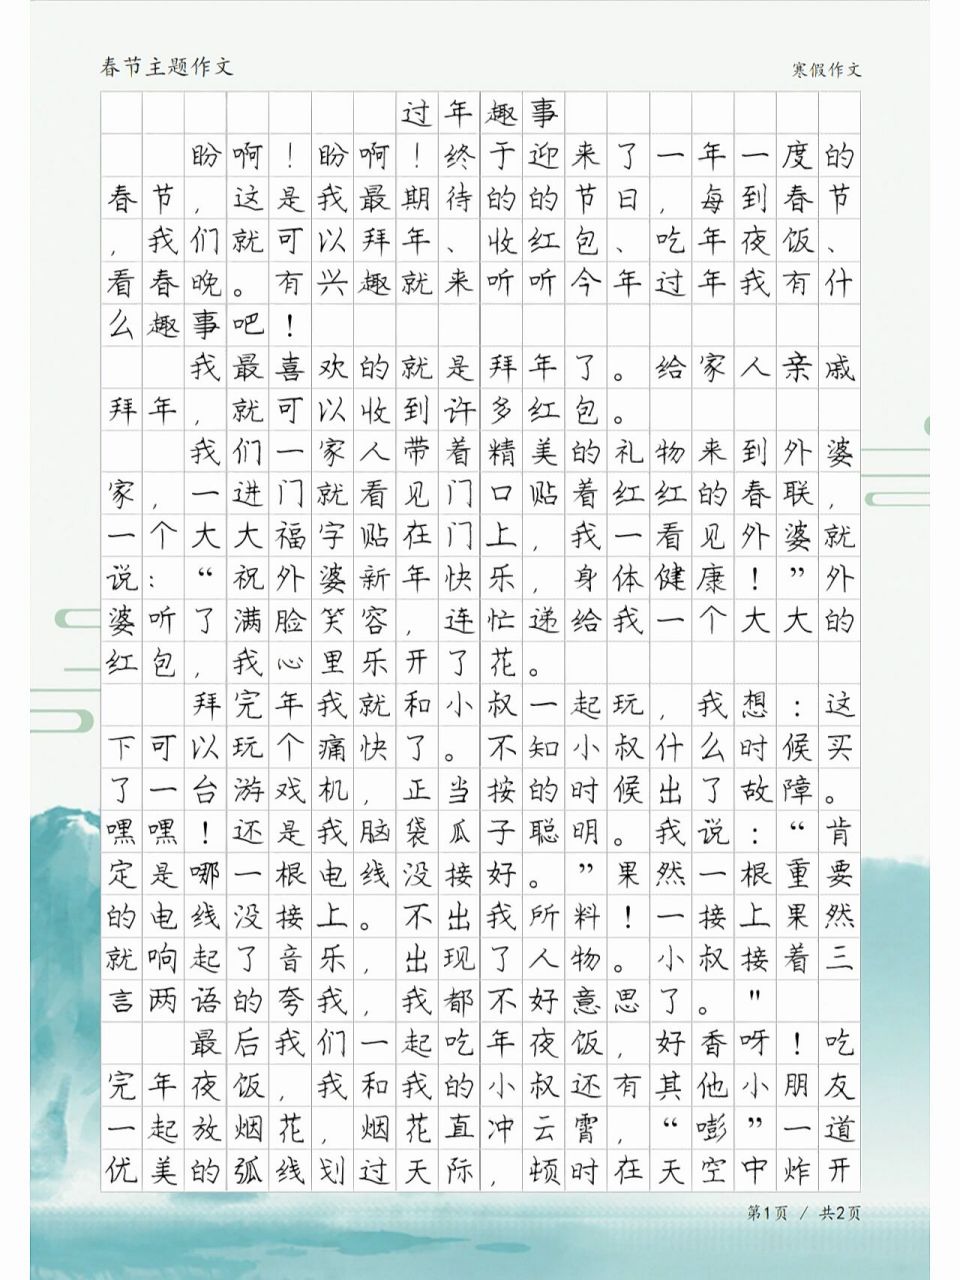 春节主题作文
寒假作文
过年趣事
盼啊！盼啊！终于迎来了一年一度的
春节，这是我最期待的的节日，每到春节
，我们就可以拜年、收红包、吃年夜饭、
看春晚。有兴趣就来听听今年过年我有什
么趣事吧！
我最喜欢的就是拜年了。给家人亲戚
拜年，就可以收到许多红包。
我们一家人带着精美的礼物来到外婆
家，一进门就看见门口贴着红红的春联，
一个大大福字贴在门上，我一看见外婆就
说：“祝外婆新年快乐，身体健康！”外
婆听了满脸笑容，连忙递给我一个大大的
红包，我心里乐开了花。
拜完年我就和小叔一起玩，我想：这
下可以玩个痛快了。不知小叔什么时候买
了一台游戏机，正当按的时候出了故障。
嘿嘿！还是我脑袋瓜子聪明。我说：“肯
定是哪一根电线没接好。”果然一根重要
的电线没接上。不出我所料！一接上果然
就响起了音乐，出现了人物。小叔接着三
言两语的夸我，我都不好意思了。"
最后我们一起吃年夜饭，好香呀！吃
完年夜饭，我和我的小叔还有其他小朋友
一起放烟花，烟花直冲云霄，“嘭”一道
优美的弧线划过天际，顿时在天空中炸开
第1页 / 共2页